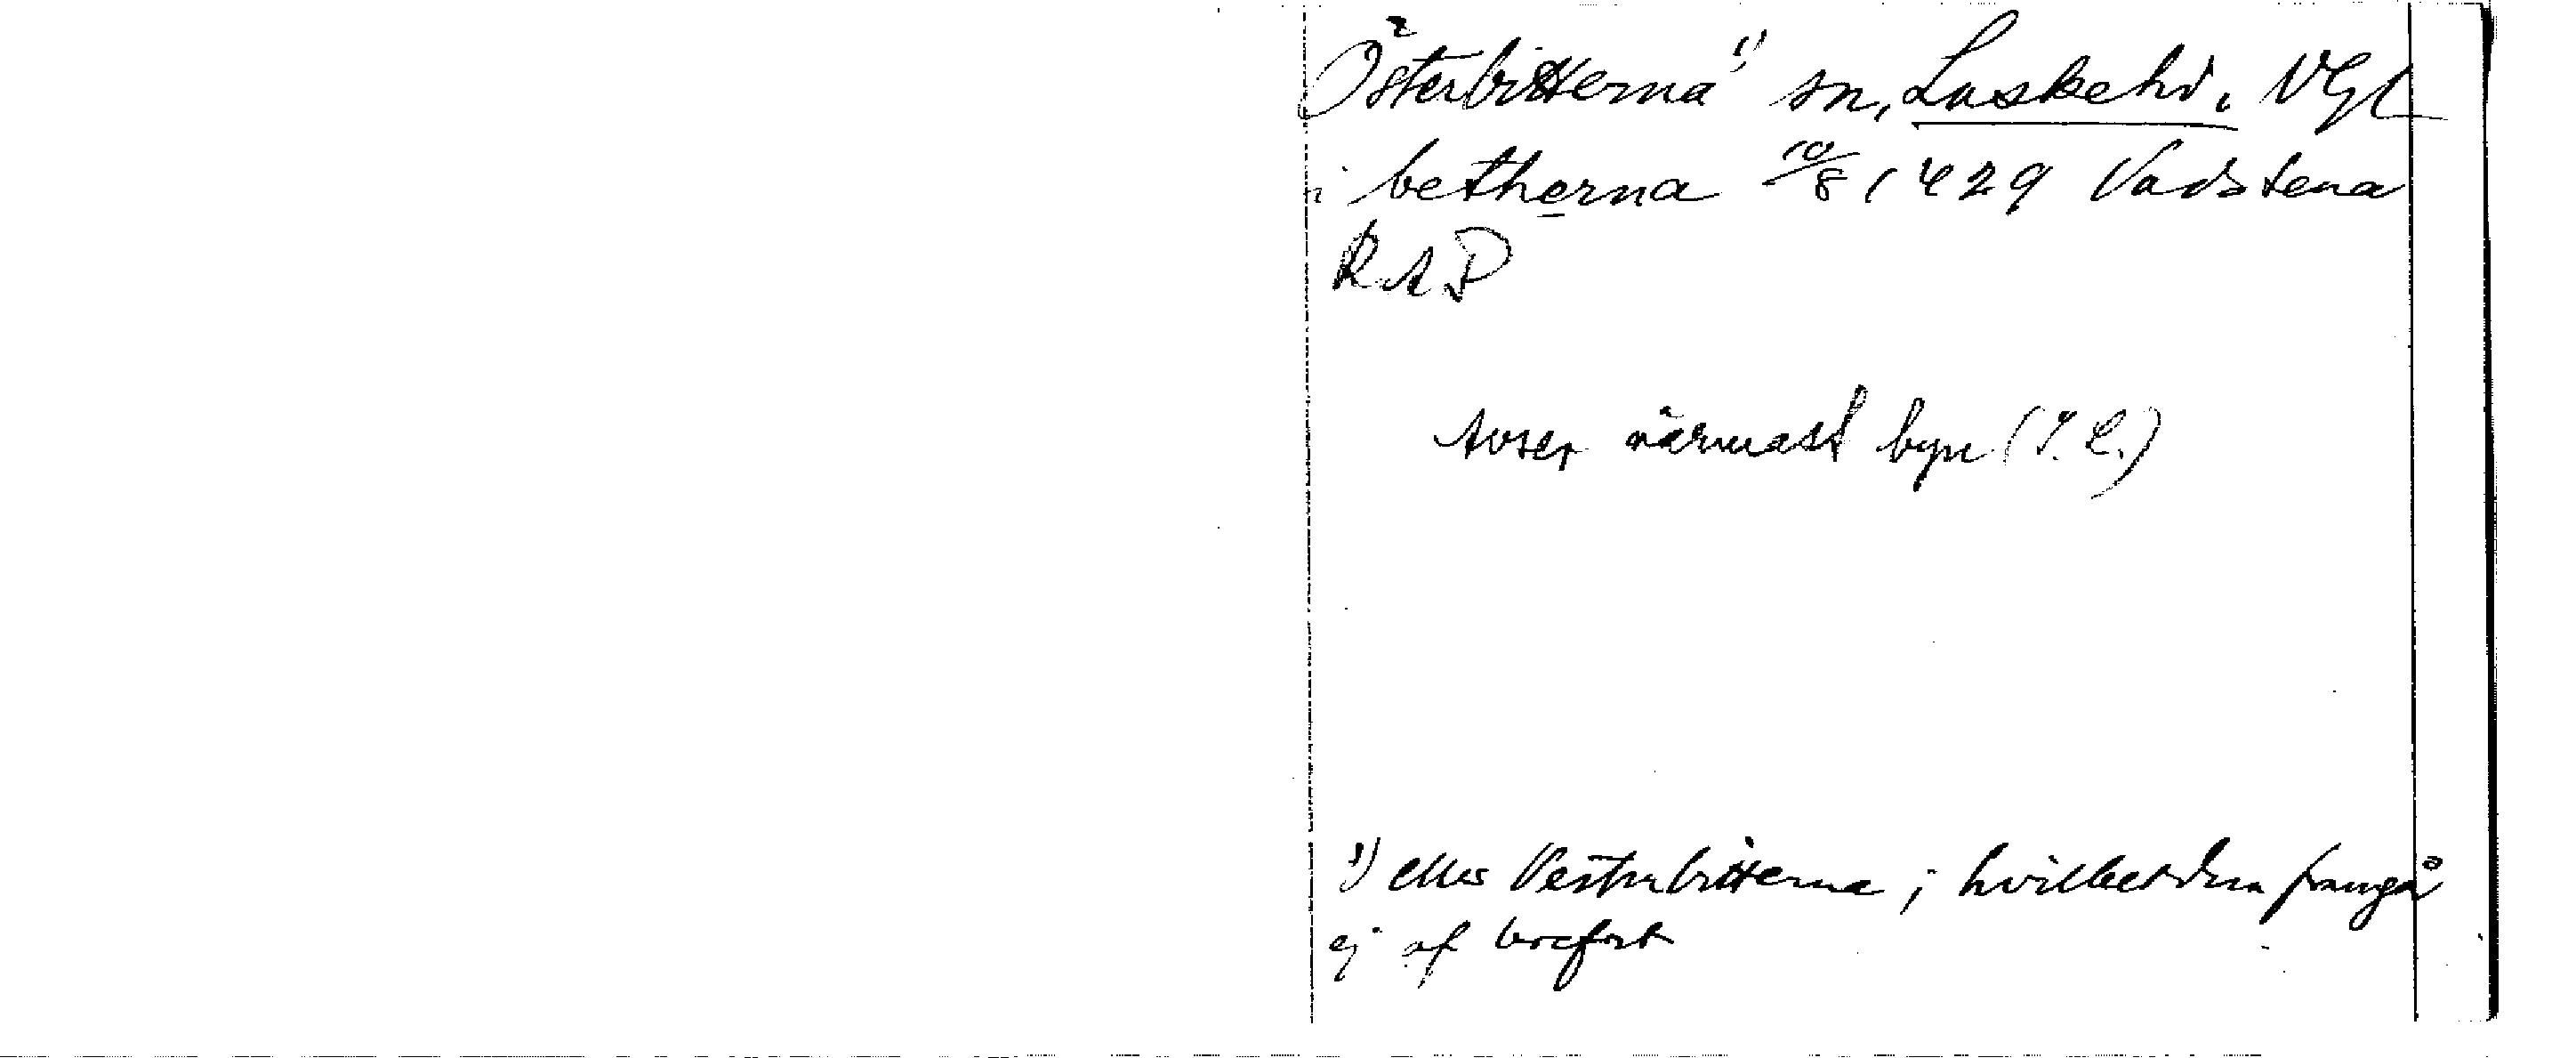 Österbitterna¹⁾ sn, Laskehd, VGL
i betherna 10/8 1429 Vadstena
RAP
Avser närmast byn (I. L.)
¹⁾ eller Vesterbitterna; hvilketdera framgår
ej af brefvet